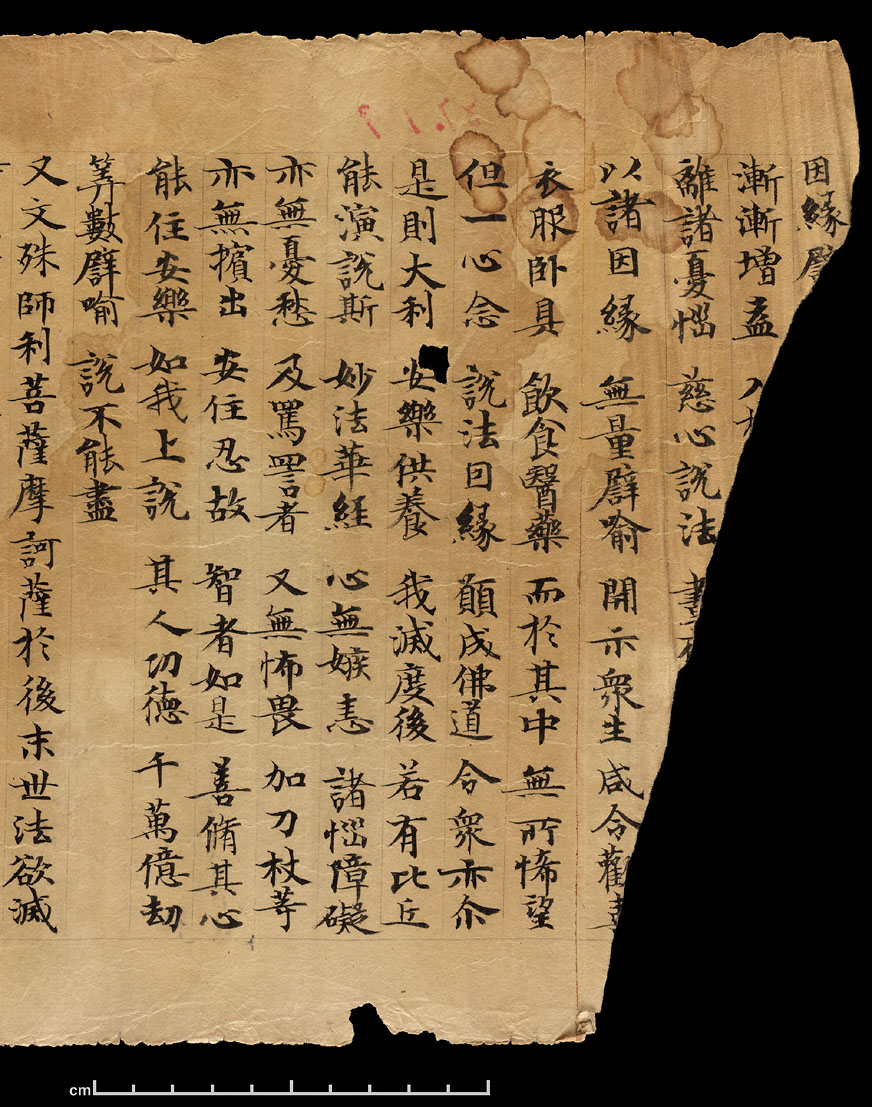 因緣譬
漸漸增益 入於
離諸憂惱 慈心說法 晝夜
以諸因緣 無量譬喻 開示衆生 咸令歡喜
衣服卧具 飲食醫藥 而於其中 無所悕望
但一心念 說法因緣 願成佛道 令衆亦尒
是則大利 安樂供養 我滅度後 若有比丘
能演說斯 妙法華經 心無嫉恚 諸惱障礙
亦無憂愁 及罵詈者 又無怖畏 加刀杖等
亦無擯出 安住忍故 智者如是 善脩其心
能住安樂 如我上說 其人功德 千萬億劫
筭數譬喻 說不能盡
又文殊師利菩薩摩訶薩於後末世法欲滅
cm